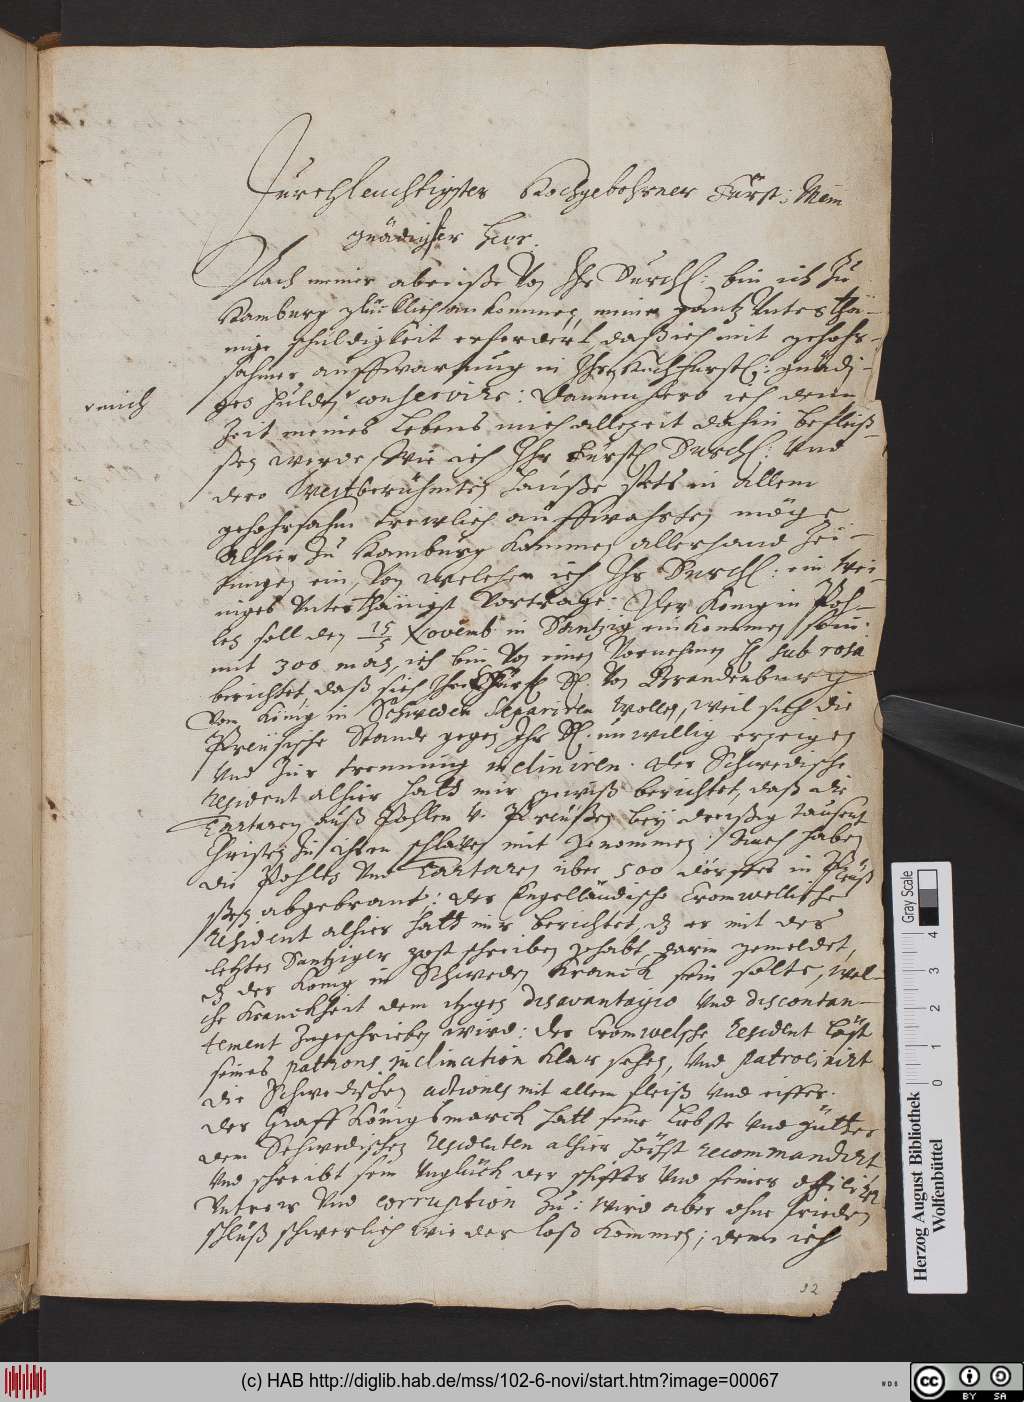 Durchleuchtigster Hochgebohrner Fürst: Mein
gnädigster Herr.
Nach meiner abereiße von Ihr Durchl: bin ich zu
Hamburg glücklich ankommen, meine gantz Unterthä-
nige schuldigkeit erfordert, daß ich mit gehohr-
sahmer auffwartung in Ihr Hochfürstl: gnädi-
ges hulden conservire: Dannenhero ich denn
mich
Zeit meines Lebens mich allezeit dahin befleiß-
ßen werde, wie ich Ihr Fürstl Durchl: Und
dero Weitberühmten Hauße stets in allem
gehohrsahm trewlich auffwahrten möge
Alhier zu Hamburg kommen allerhand Zei-
tungen ein, von welchen ich Ihr Durchl: ein wei-
niges Unterthänigst vortrage: Der König in Poh-
len soll den 15/5 Novemb in Dantzig einkommen sein:
mit 300 man, ich bin von einen Vornehmen H sub rosa
berichtet, daß sich Ihr Churf Dl. von Brandenburg
vom König in Schweden separiren wollen, weil sich die
Preüsische Stande gegen Ihr Dl. unwillig erzeigen
Und zur trennung incliniren. Der Schwedische
Resident alhier hatt mir gewiß berichtet, daß die
Tartaren auß Pohlen v. Preüßen bey dreißig tausent
Christen zu ihren schlaven mit genommen: Auch haben
die Pohlen Und Tartaren über 500 dörffer in Preüß
ßen abgebrant: der Engelländische Cromwellische
Resident alhier hatt mir berichtet, dz er mit der
letzten Dantziger post schreiben gehabt, darin gemeldet,
dz der König in Schweden Kranck sein solte, wel-
che Kranckheit dem itzigen disavantagio Und discontan-
tement Zugeschrieben wird: der Cromwelsche Resident läst
seines patrons inclination klar sehen, Und patrocinirt
die Schwedischen actiones mit allem fleiß Und eiffer.
der Graff Königsmarck hatt seine Liebste Und gütter
dem Schwedischen Residenten alhier höchst recommandirt
Und schreibt sein Unglück der schiffer Und seiner officirer
Untrew Und corruption zu: wird aber ohne frieden
schluß schwerlich wieder loß kommen; denn ich
32
Gray Scale
0 1 2 3 4
Herzog August Bibliothek
Wolfenbüttel
(c) HAB http://diglib.hab.de/mss/102-6-novi/start.htm?image=00067
WDB
cc BY SA